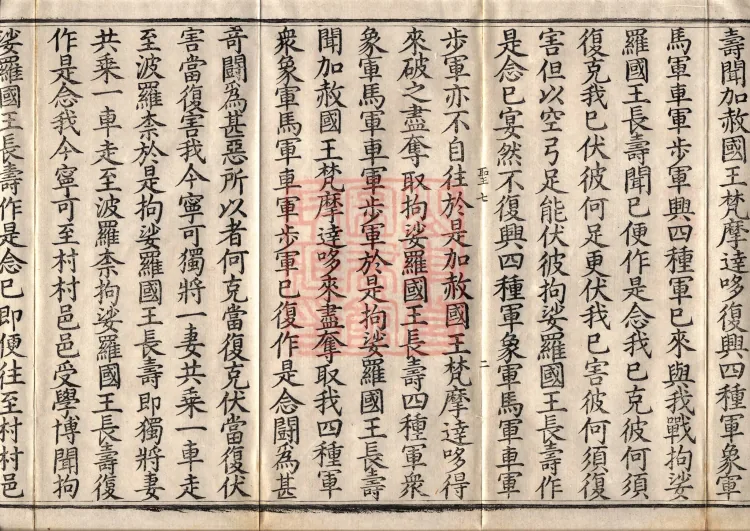 壽聞加赦國王梵摩達哆復興四種軍象軍
馬軍車軍步軍興四種軍已來與我戰拘娑
羅國王長壽聞已便作是念我已克彼何須
復克我已伏彼何足更伏我已害彼何須復
害但以空弓足能伏彼拘娑羅國王長壽作
是念已宴然不復興四種軍象軍馬軍車軍
聖七
二
步軍亦不自往於是加赦國王梵摩達哆得
來破之盡奪取拘娑羅國王長壽四種軍衆
象軍馬軍車軍步軍於是拘娑羅國王長壽
聞加赦國王梵摩達哆來盡奪取我四種軍
衆象軍馬軍車軍步軍已復作是念鬪為甚
奇鬪為甚惡所以者何克當復克伏當復伏
害當復害我今寧可獨將一妻共乘一車走
至波羅柰於是拘娑羅國王長壽即獨將妻
共乘一車走至波羅柰拘娑羅國王長壽復
作是念我今寧可至村村邑邑受學博聞拘
娑羅國王長壽作是念已即便往至村村邑